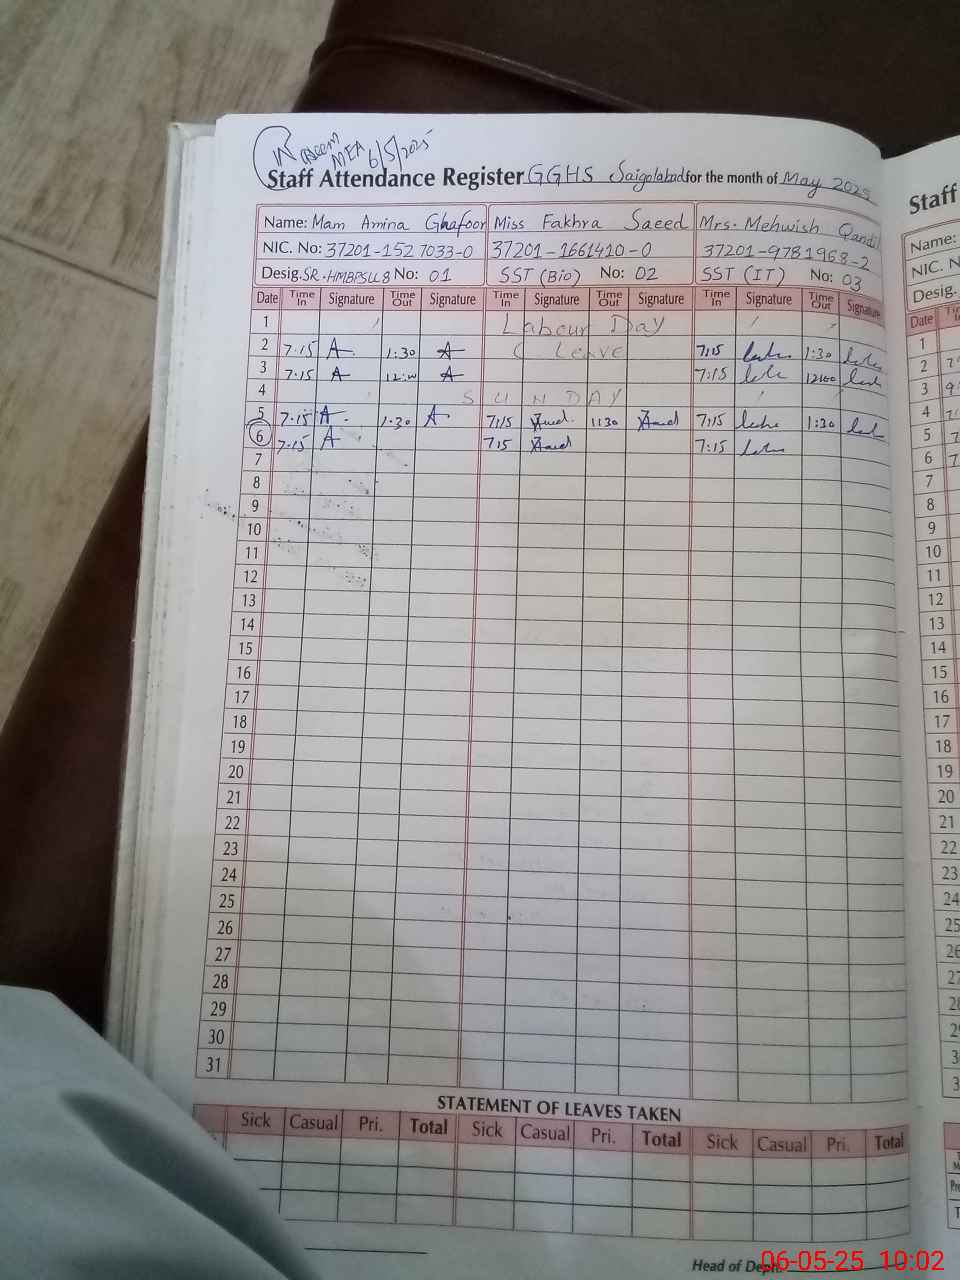 Waseem
MEA 6/5/2025
Staff Attendance Register GGHS Saigolabad for the month of May 2025
Name: Mam Amina Ghafoor Miss Fakhra Saeed Mrs. Mehwish Qandil
NIC. No: 37201-1527033-0 37201-1661410-0 37201-9781968-2
Desig. SR.HMBPSLL8 No: 01 SST (Bio) No: 02 SST (IT) No: 03
Date Time In Signature Time Out Signature Time In Signature Time Out Signature Time In Signature Time Out Signature
1 Labour Day
2 7.15 A 1:30 A Leave 7:15 1:30
3 7:15 A 12:00 A 7:15 12:00
4 SUNDAY
5 7:15 A 1.30 A 7:15 1:30 7:15 1:30
6 7.15 A 7:15 7:15
7
8
9
10
11
12
13
14
15
16
17
18
19
20
21
22
23
24
25
26
27
28
29
30
31
STATEMENT OF LEAVES TAKEN
Sick Casual Pri. Total Sick Casual Pri. Total Sick Casual Pri. Total
Head of Deptt.
Staff
Name:
NIC. N
Desig.
Date
1
2
3
4
5
6
7
8
9
10
11
12
13
14
15
16
17
18
19
20
21
22
23
24
25
26
27
28
29
06-05-25 10:02